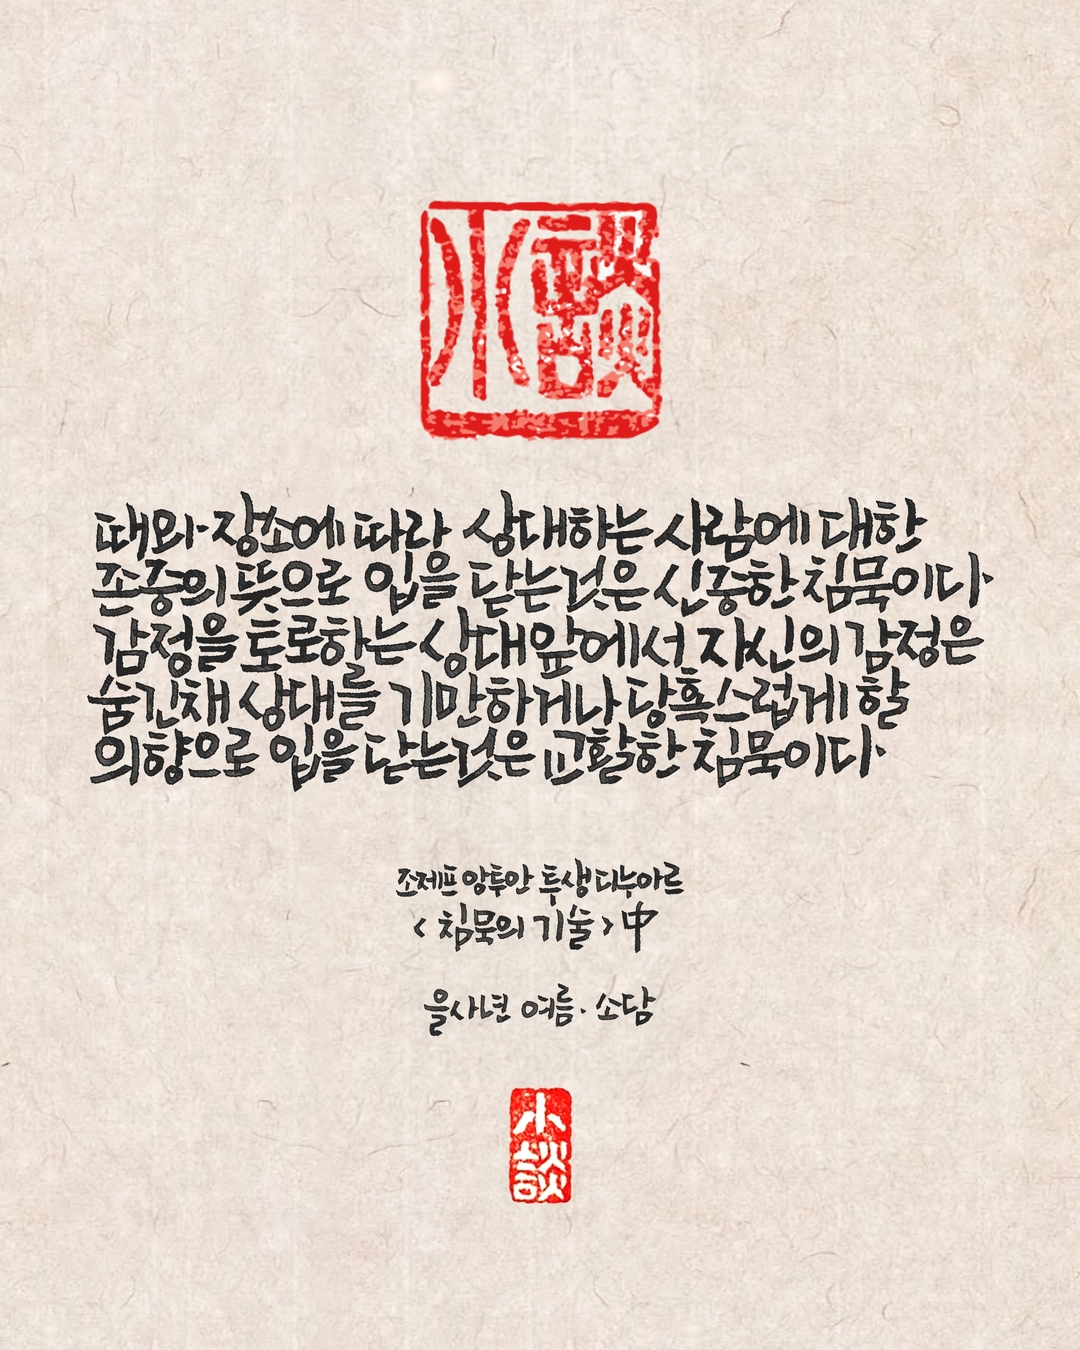 小談
때와 장소에 따라 상대하는 사람에 대한
존중의 뜻으로 입을 닫는것은 신중한 침묵이다.
감정을 토로하는 상대앞에서 자신의 감정은
숨긴채 상대를 기만하거나 당혹스럽게 할
의향으로 입을 닫는것은 교활한 침묵이다.
조제프 앙투안 투생 디누아르
<침묵의 기술> 中
을사년 여름. 소담
小談